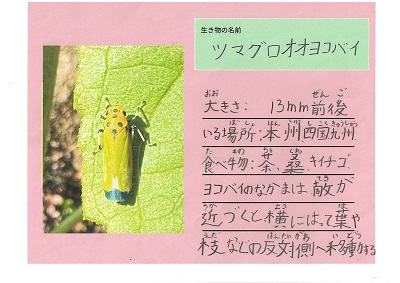 生き物の名前
ツマグロオオヨコバイ
大きさ：13mm前後
いる場所：本州四国九州
食べ物：茶、桑、キイチゴ
ヨコバイのなかまは敵が
近づくと横にはって葉や
枝などの反対側へ移動する